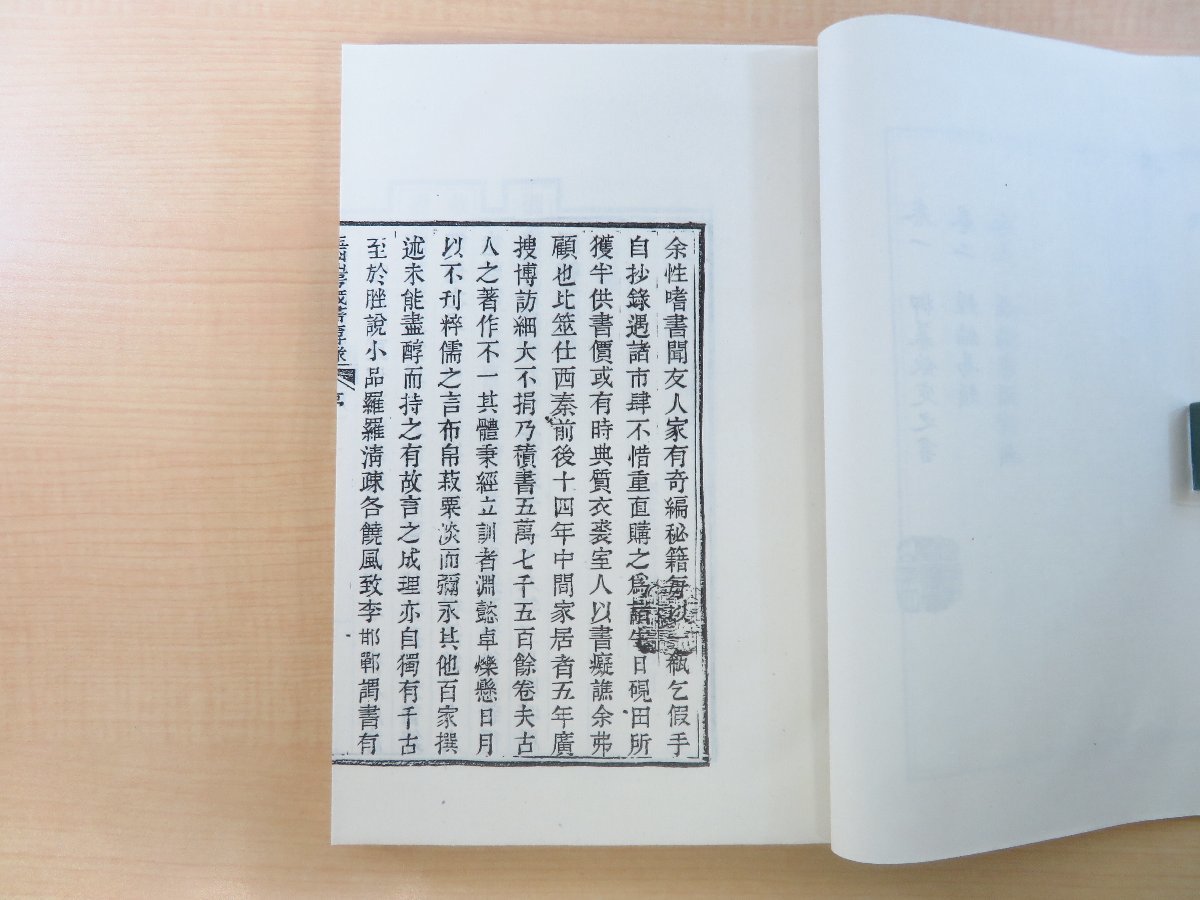 余性嗜書聞友人家有奇編秘籍每以一瓻乞假手
自抄錄遇諸市肆不惜重直購之爲諸生日硯田所
獲半供書價或有時典質衣裘室人以書癡譙余弗
顧也比筮仕西秦前後十四年中間家居者五年廣
搜博訪細大不捐乃積書五萬七千五百餘卷夫古
人之著作不一其體秉經立訓者淵懿卓爍懸日月
以不刊粹儒之言布帛菽粟淡而彌永其他百家撰
述未能盡醇而持之有故言之成理亦自獨有千古
至於脞說小品羅羅清疎各饒風致李邯鄲謂書有